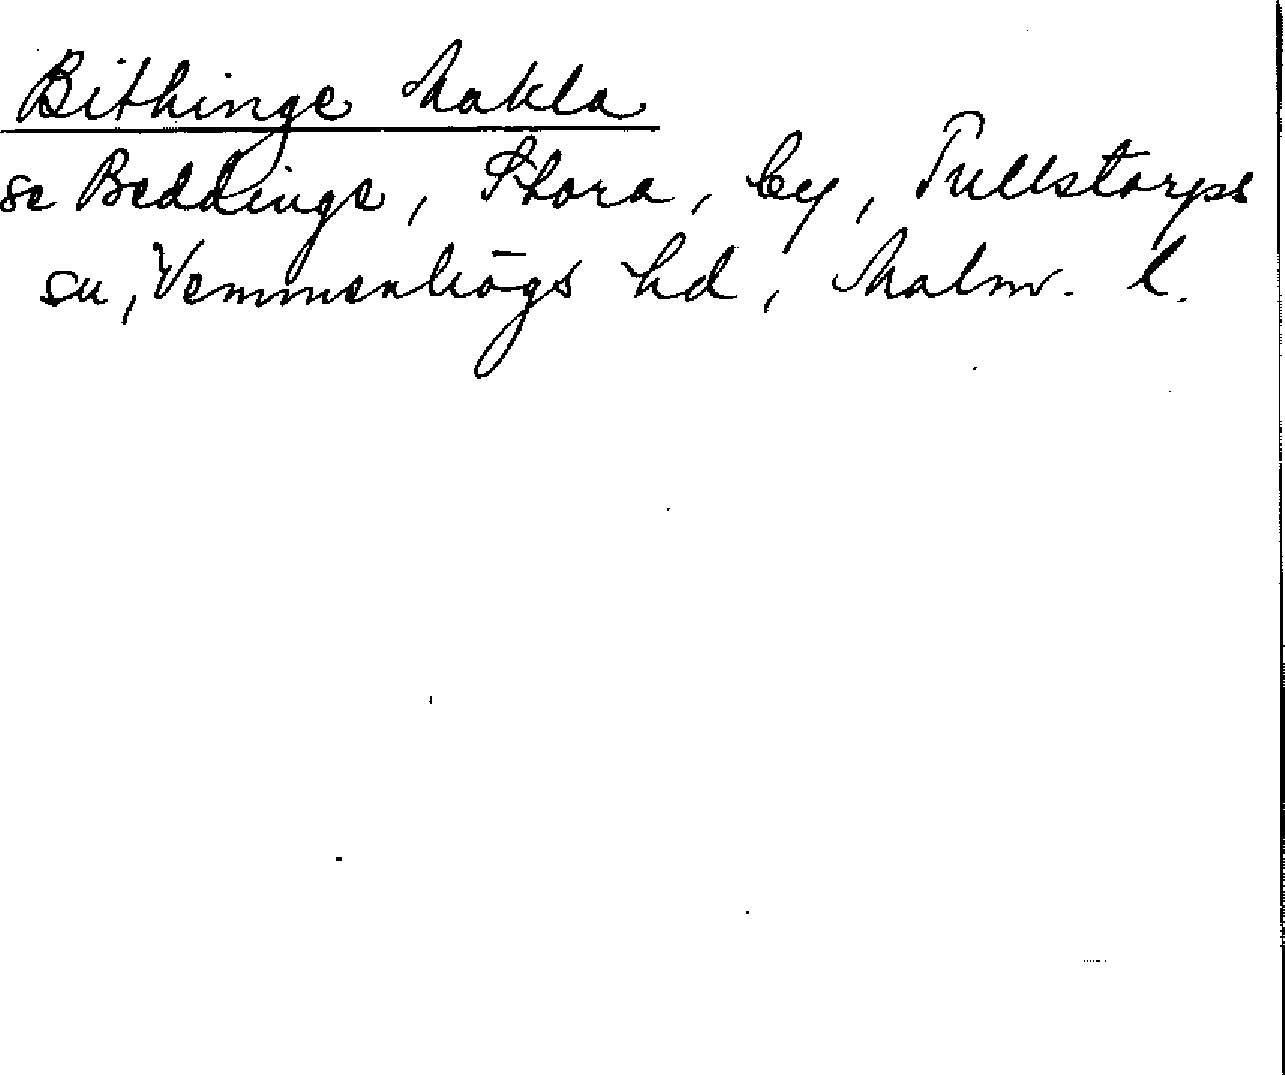 Bithinge Makla
se Beddinge, Stora, by, Tullstorps
sn, Vemmenhögs hd, Malm. l.